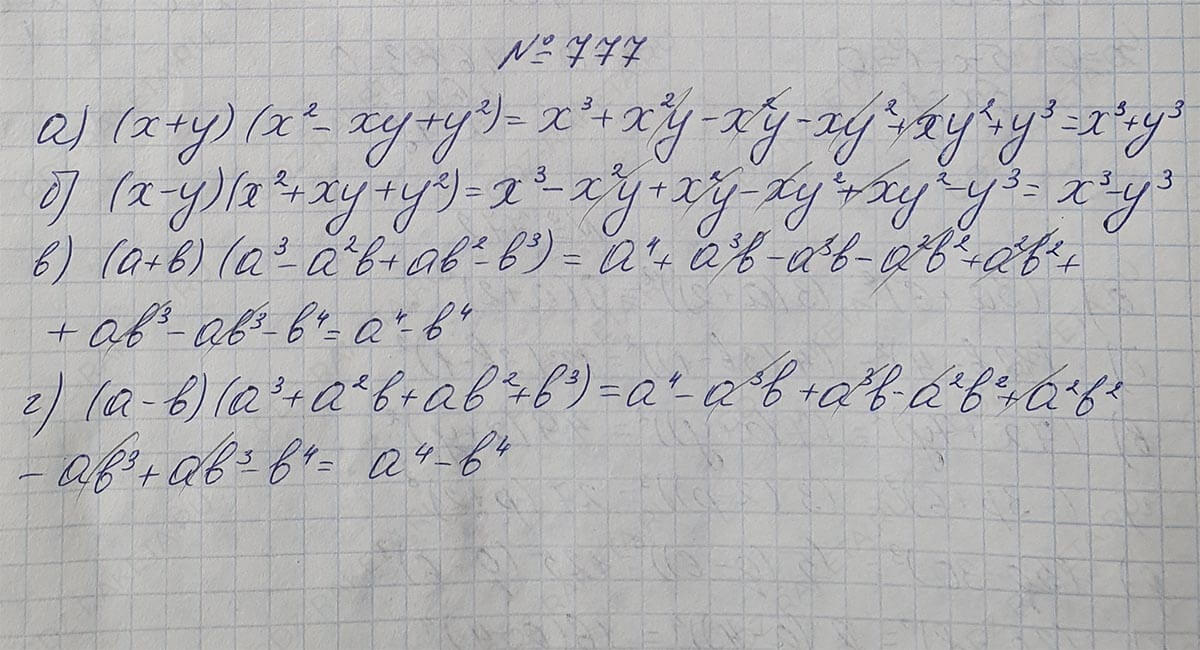 № 777
а) (x+y)(x²-xy+y²)= x³+x²y-x²y-xy²+xy²+y³=x³+y³
б) (x-y)(x²+xy+y²)= x³-x²y+x²y-xy²+xy²-y³= x³-y³
в) (a+b)(a³-a²b+ab²-b³)= a⁴+a³b-a³b-a²b²+a²b²+
+ab³-ab³-b⁴= a⁴-b⁴
г) (a-b)(a³+a²b+ab²+b³)=a⁴-a³b+a³b-a²b²+a²b²
-ab³+ab³-b⁴= a⁴-b⁴